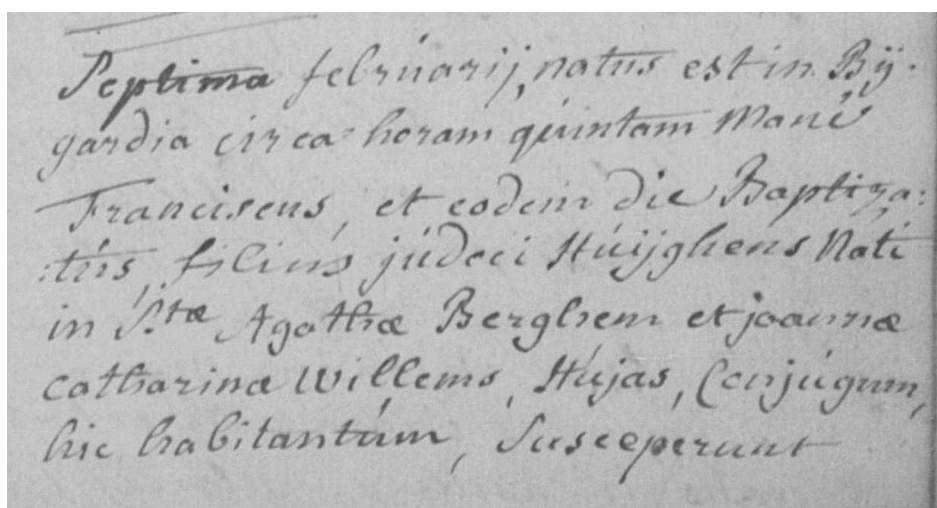 Septima februarij, natus est in Bij.
gardia circa horam quintam Mane
Franciscus, et eodem die Baptiza:
:tus, filius judoci Huijghens Nati
in S.tæ Agathæ Berghem et joannæ
catharinæ Willems, Hujas, Conjugum,
hic habitantum, Susceperunt